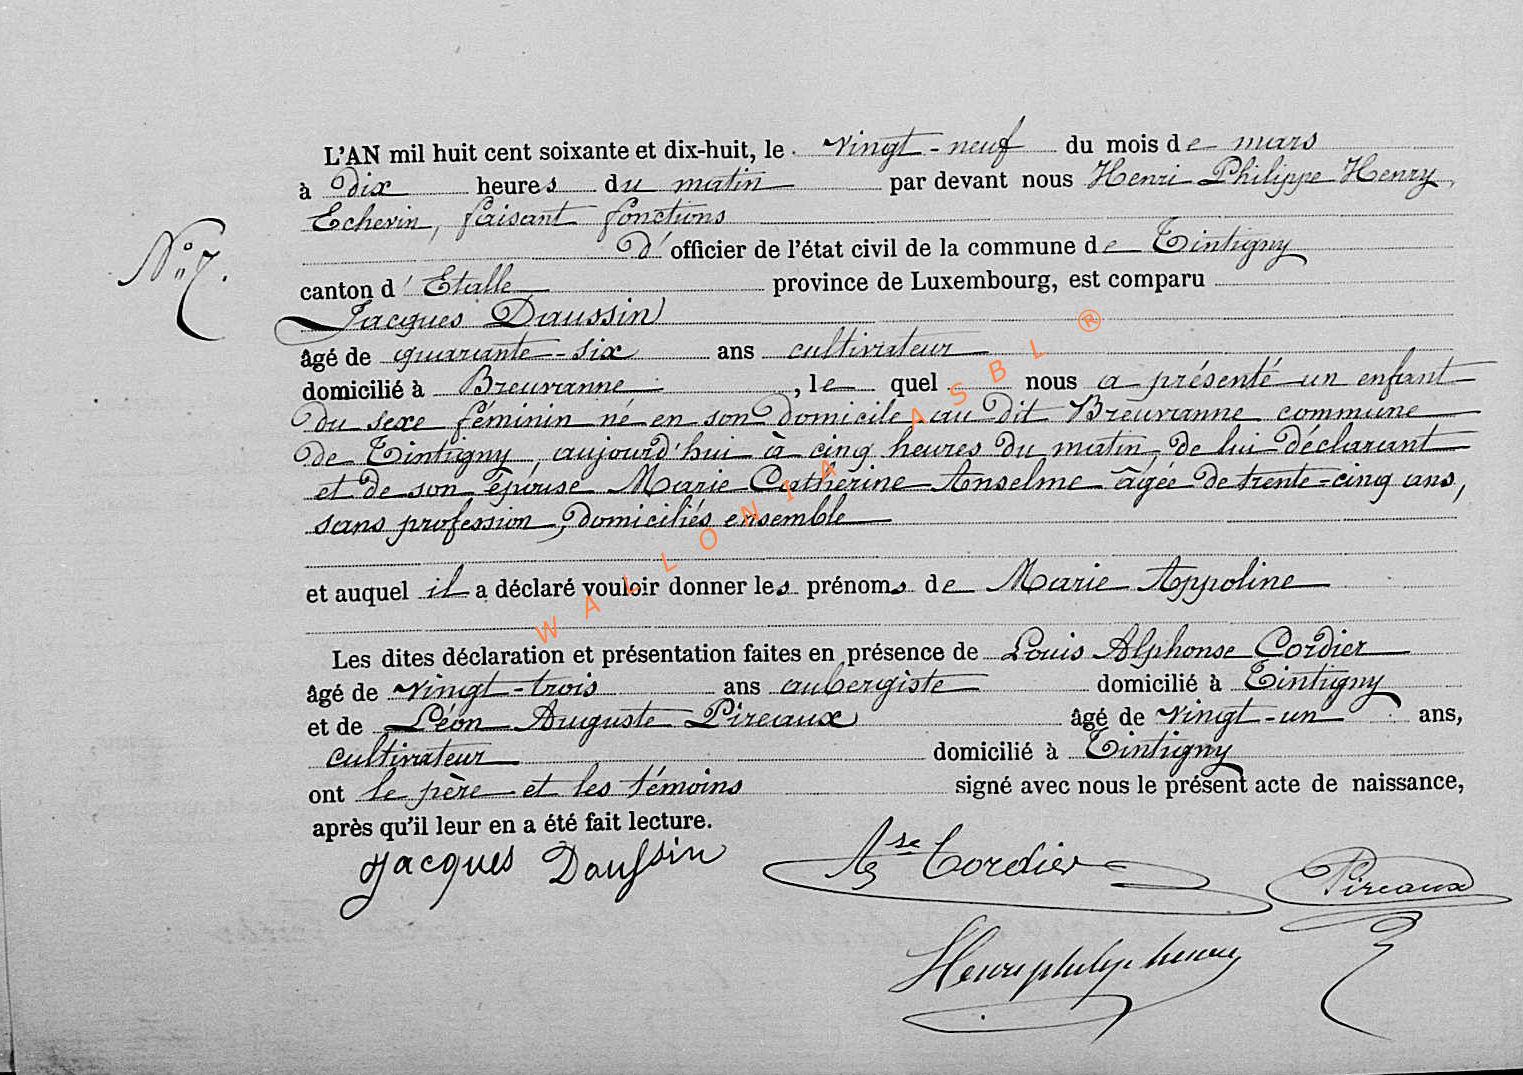 L'AN mil huit cent soixante et dix-huit, le vingt-neuf du mois de mars
à dix heures du matin par devant nous Henri Philippe Henry,
Echevin, faisant fonctions
N° 7.
d'officier de l'état civil de la commune de Tintigny
canton d'Etalle province de Luxembourg, est comparu
Jacques Daussin
âgé de quarante-six ans cultivateur
domicilié à Breuvanne, le quel nous a présenté un enfant
du sexe féminin né en son domicile au dit Breuvanne commune
de Tintigny, aujourd'hui à cinq heures du matin, de lui déclarant
et de son épouse Marie Catherine Anselme âgée de trente-cinq ans,
sans profession, domiciliés ensemble
et auquel il a déclaré vouloir donner les prénoms de Marie Appoline
Les dites déclaration et présentation faites en présence de Louis Alphonse Cordier
âgé de vingt-trois ans aubergiste domicilié à Tintigny
et de Léon Auguste Pireaux âgé de vingt-un ans,
cultivateur domicilié à Tintigny
ont le père et les témoins signé avec nous le présent acte de naissance,
après qu'il leur en a été fait lecture.
Jacques Daussin Ase Cordier Pireaux
Henri philip henry
WALLONIA ASBL ®